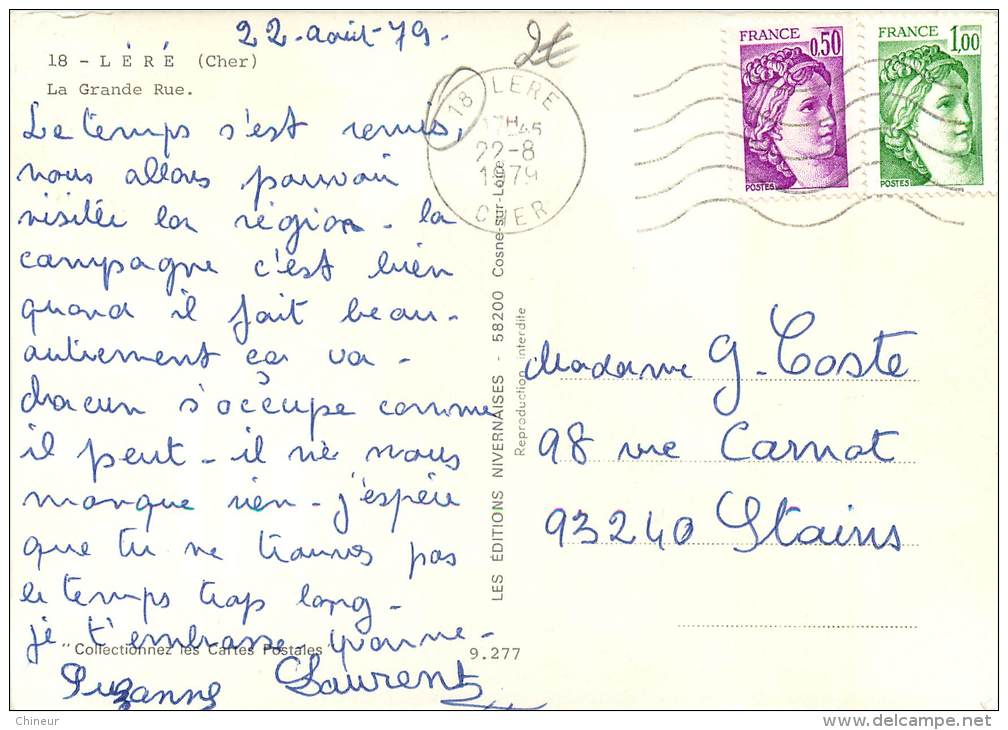 22-août-79.
2€
18 - LÉRÉ (Cher)
La Grande Rue.
Le temps s'est remis,
nous allons pouvoir
visitée la région - la
campagne c'est bien
quand il fait beau-
autrement ça va -
chacun s'occupe comme
il peut - il ne nous
manque rien - j'espère
que tu ne trouves pas
le temps trop long -
je t'embrasse Yvonne -
Suzanne Laurent
"Collectionnez les Cartes Postales"
9.277
18 LERE
17H45
22-8
1979
CHER
LES ÉDITIONS NIVERNAISES - 58200 Cosne-sur-Loire
Reproduction interdite
FRANCE
0,50
POSTES
FRANCE
1,00
POSTES
Madame G. Coste
98 rue Carnot
93240 Stains
Chineur
www.delcampe.net